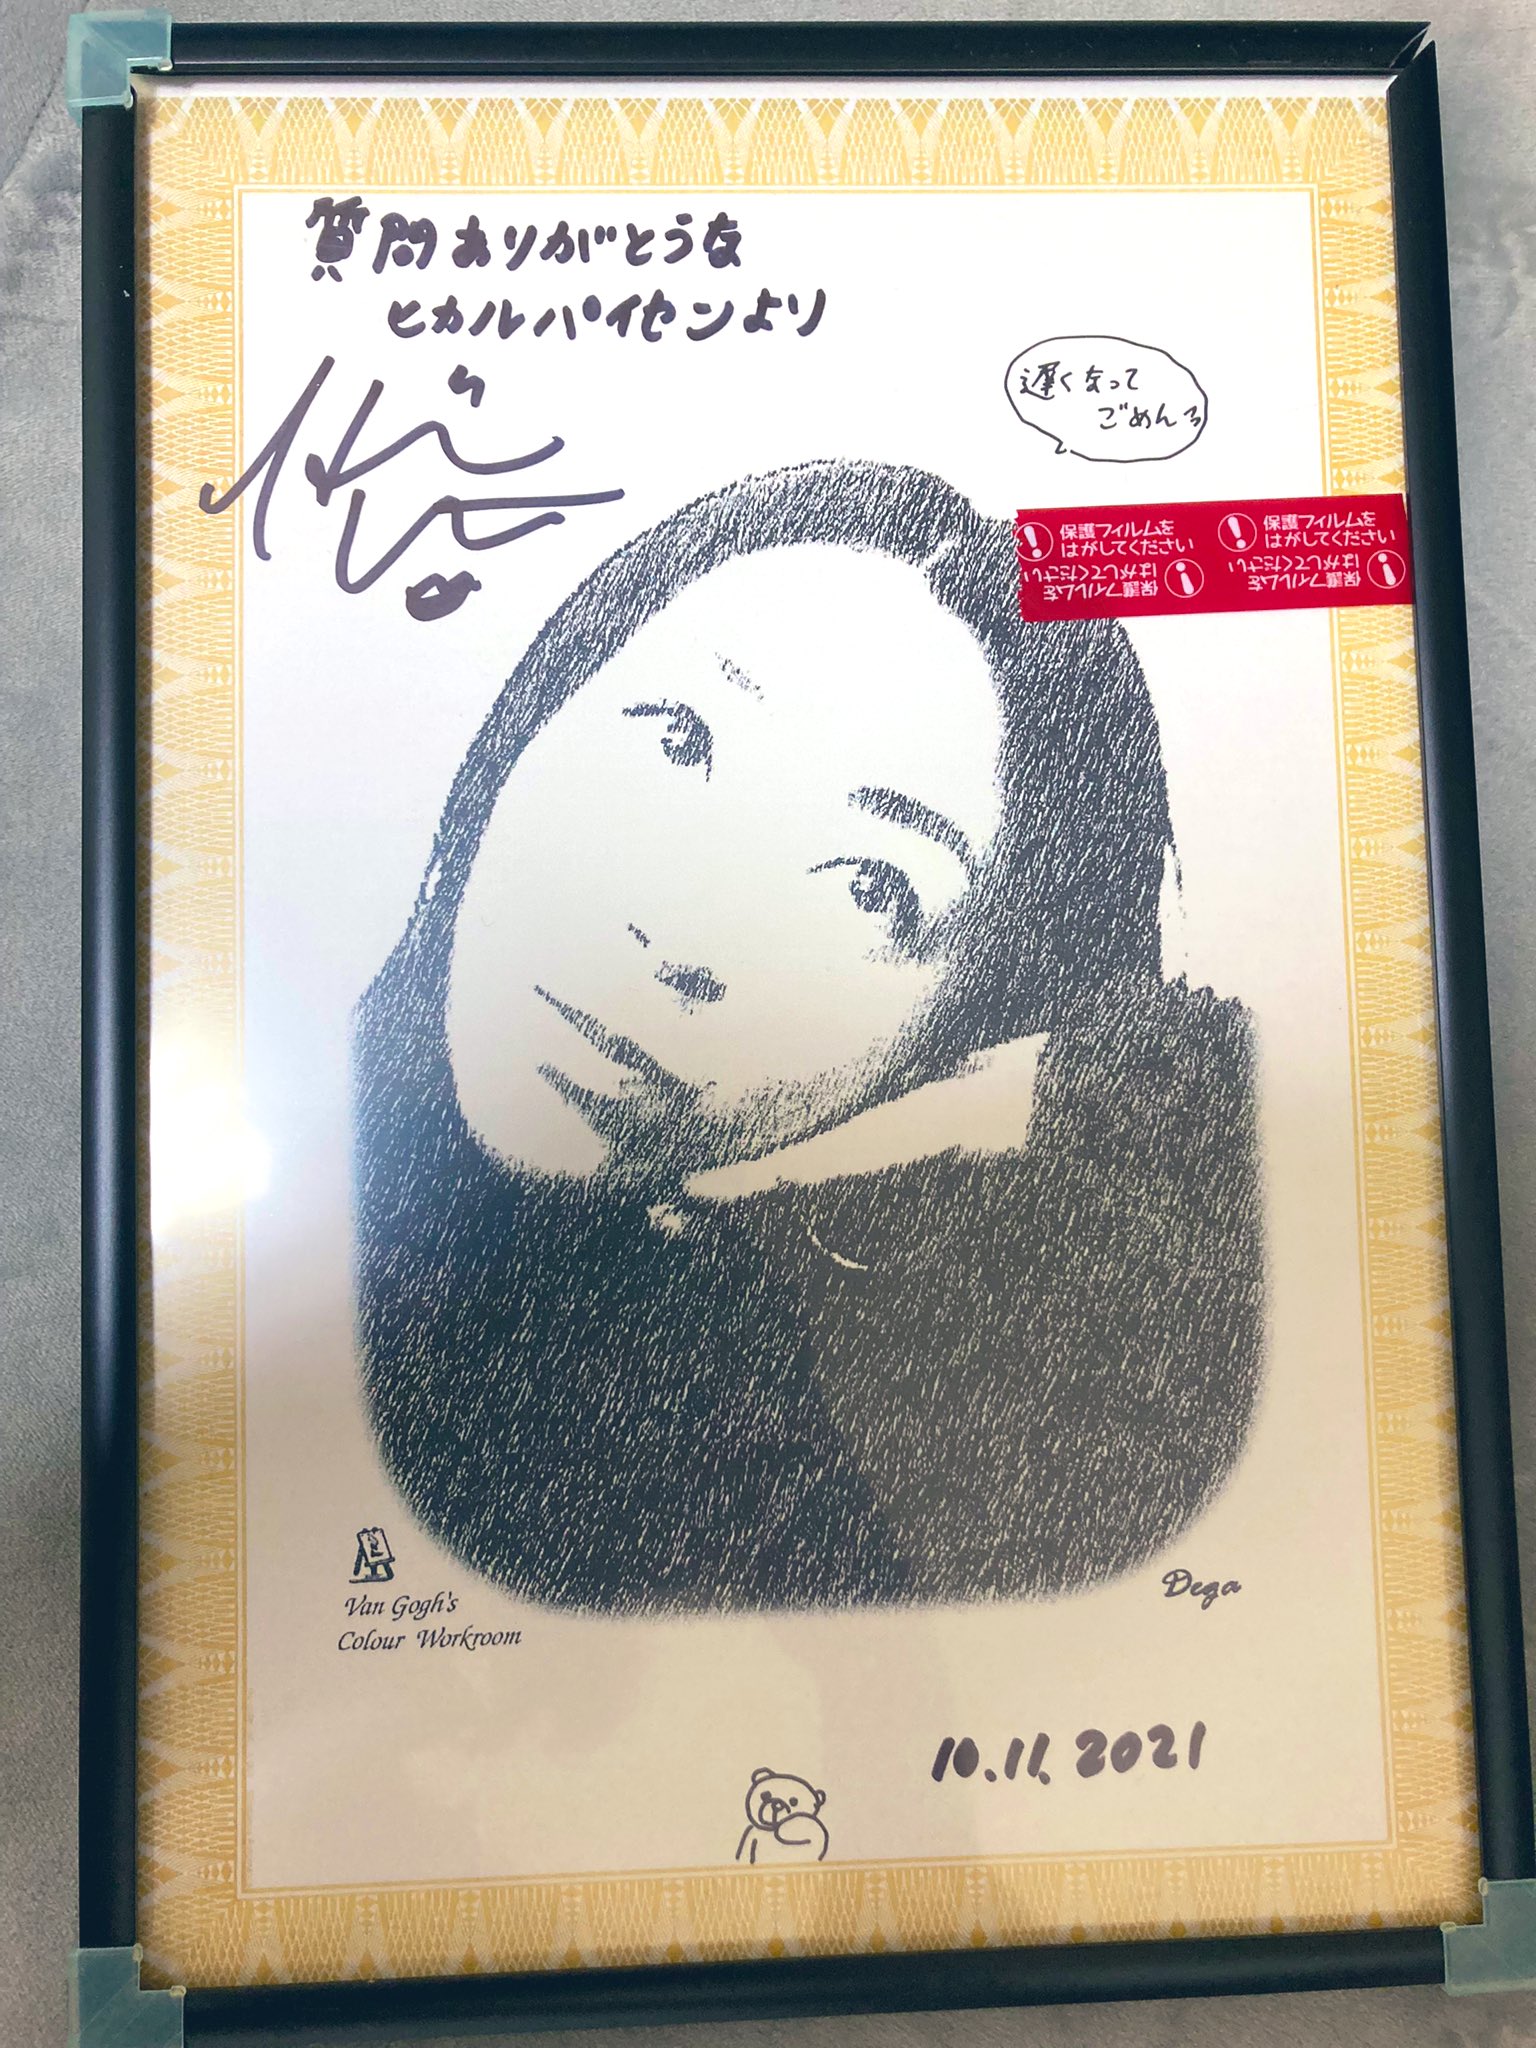 質問ありがとうな
ヒカルパイセンより
遅くなって
ごめんっ
保護フィルムを
はがしてください
保護フィルムを
はがしてください
保護フィルムを
はがしてください
保護フィルムを
はがしてください
Van Gogh's
Colour Workroom
Dega
10.11.2021